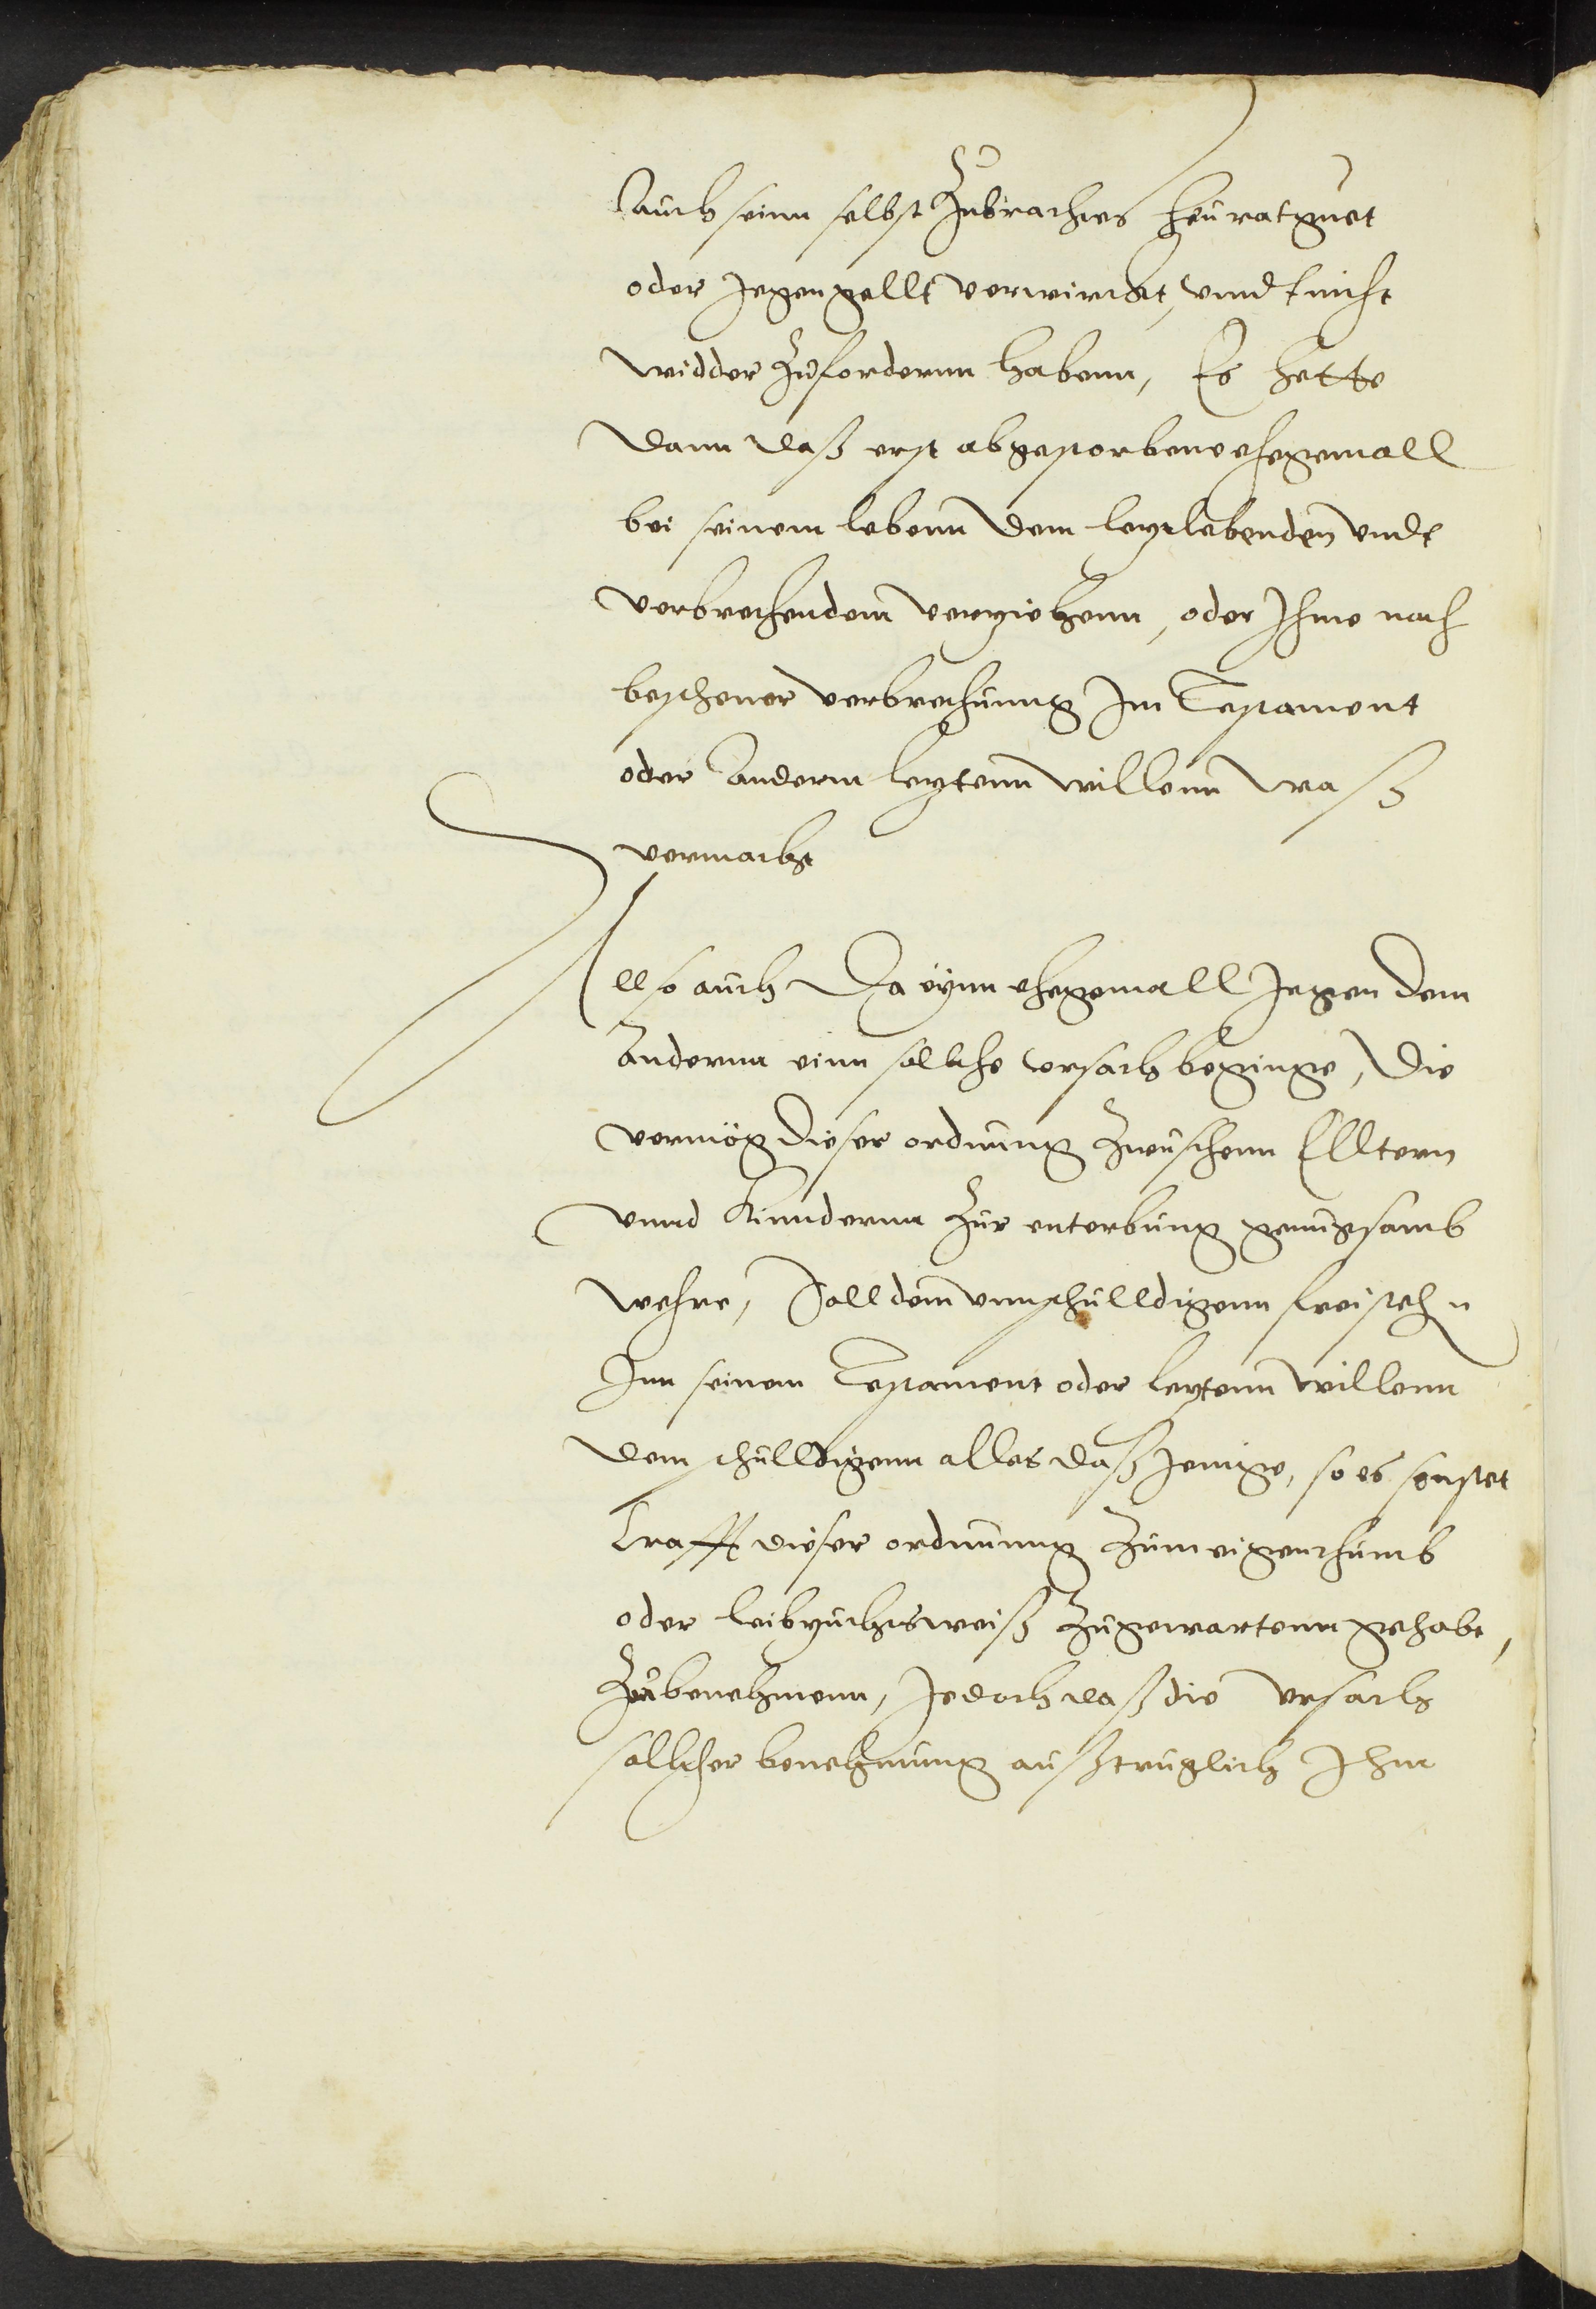 Auch seinn selbst Zubrachtes Heuratguet
oder Jegengellt verwirckt, vnnd nicht
widder Zufordernn habenn, Es hette
dann daß erst abgestorbene ehegemall
bei seinem lebenn dem letzlebenden vnndt
verbrechendem verziehenn, oder Ihme nach
beschener verbrechunng Im Testament
oder Anderm letztenn willenn waß
vermacht
Allso auch Da eynn ehegemall Jegen dem
Andernn einn sollche vrsach beginge, Die
vermög dieser ordnung Zwuschenn Elltern
vnnd Kinndernn Zur enterbung genugsamb
wehre, Soll dem vnnschulldigenn freistehn
Inn seinem Testament oder letztenn willenn
dem schulldigenn alles daß Jenige, so es sonstet
Krafft dieser ordnunng Zum eigenthumb
oder leibzuchtsweiß Zugewartenn gehabt,
Zubenehmenn, Jedoch daß die vrsach
sollcher benehmung außtruglich Ihnn